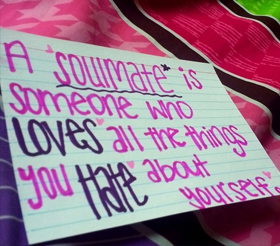 A soulmate is
someone who
LOVES all the things
you Hate about
yourself